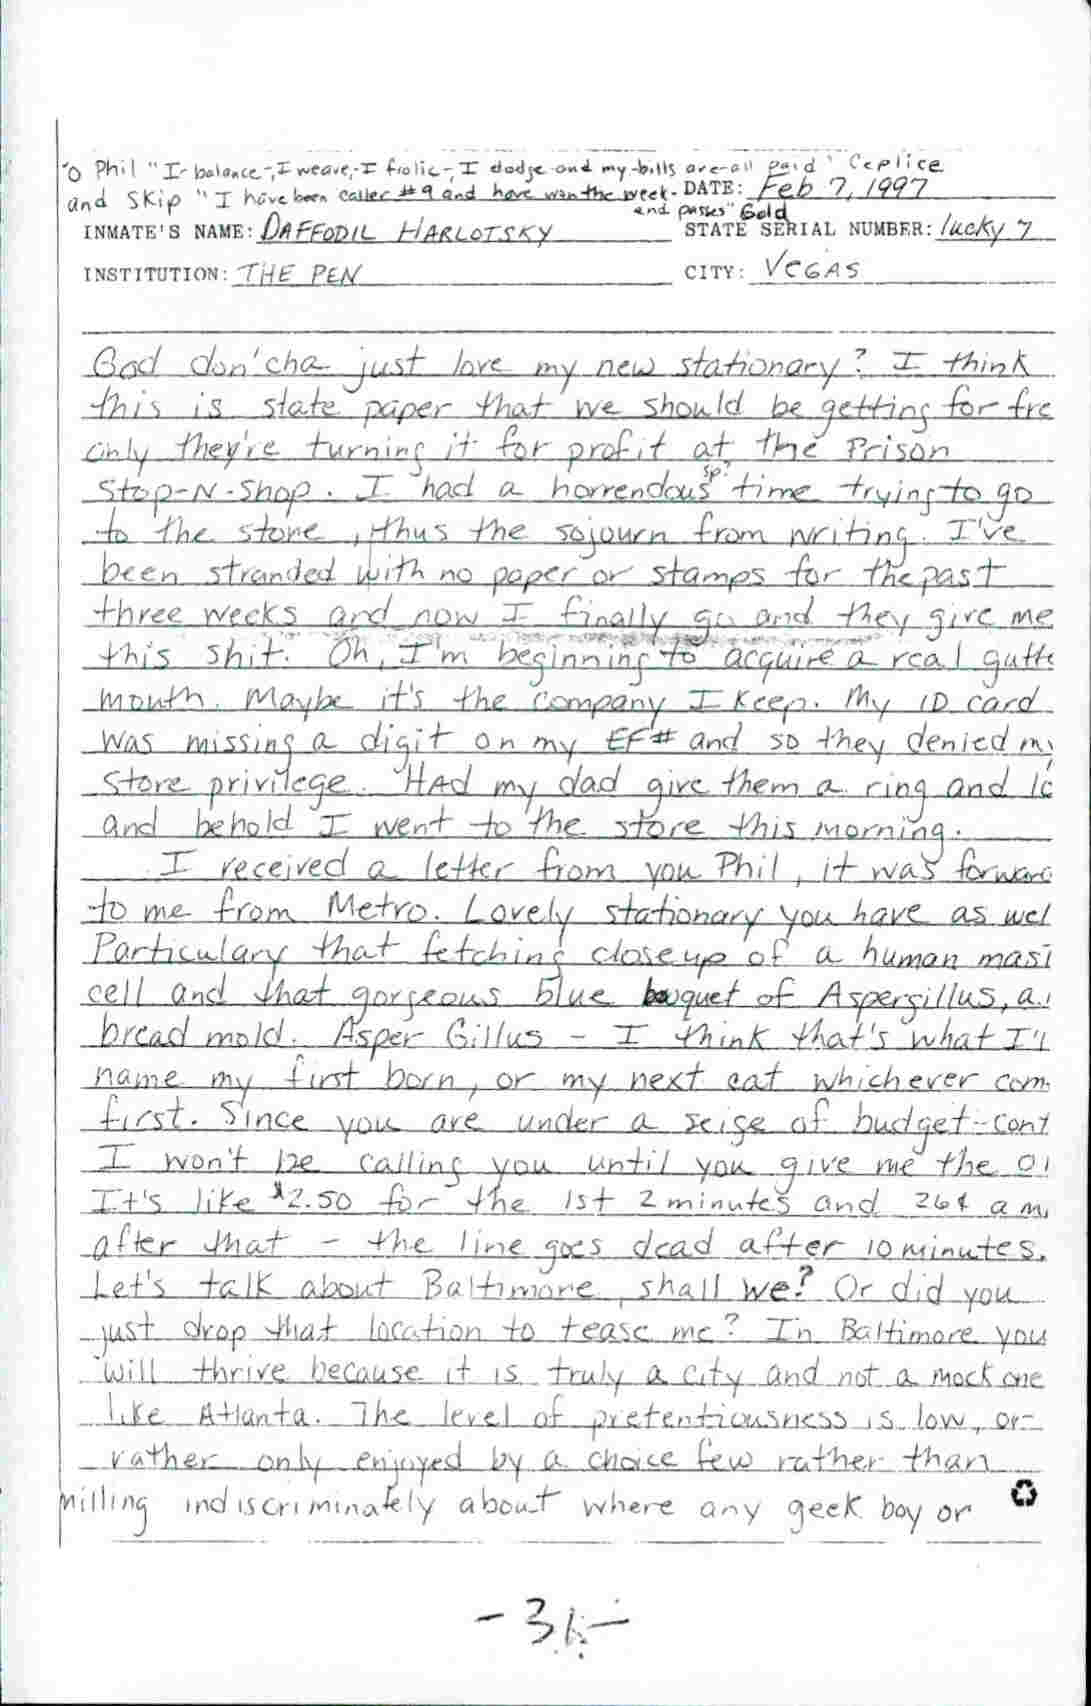 'o Phil "I-balance-, I weave,-I frolic-, I dodge-and my-bills are-all paid" Ceplice
and Skip "I have been caller #9 and have won the week-
end passes" Gold
DATE: Feb 7, 1997
INMATE'S NAME: DAFFODIL HARLOTSKY
STATE SERIAL NUMBER: lucky 7
INSTITUTION: THE PEN
CITY: VEGAS
God don'cha just love my new stationary? I think
this is state paper that we should be getting for fre
only they're turning it for profit at the Prison
Stop-N-Shop. I had a horrendous sp? time trying to go
to the store, thus the sojourn from writing. I've
been stranded with no paper or stamps for the past
three weeks and now I finally go and they give me
this shit. Oh, I'm beginning to acquire a real gutte
mouth. Maybe it's the company I keep. My ID card
was missing a digit on my EF# and so they denied my
store privilege. HAd my dad give them a ring and lo
and behold I went to the store this morning.
I received a letter from you Phil, it was forward
to me from Metro. Lovely stationary you have as wel
Particulary that fetching closeup of a human mast
cell and that gorgeous blue bouquet of Aspergillus, a
bread mold. Asper Gillus - I think that's what I'l
name my first born, or my next cat whichever com
first. Since you are under a seige of budget-cont
I won't be calling you until you give me the
It's like $2.50 for the 1st 2 minutes and 26¢ a m
after that - the line goes dead after 10 minutes.
Let's talk about Baltimore, shall we? Or did you
just drop that location to tease me? In Baltimore you
will thrive because it is truly a city and not a mock one
like Atlanta. The level of pretentiousness is low, or
rather only enjoyed by a choice few rather than
milling indiscriminately about where any geek boy or